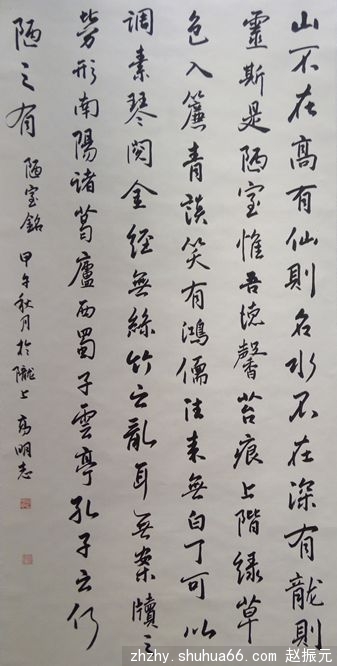 山不在高有仙則名水不在深有龍則
靈斯是陋室惟吾德馨苔痕上階綠草
色入簾青談笑有鴻儒往來無白丁可以
調素琴閱金經無絲竹之亂耳無案牘之
勞形南陽諸葛廬西蜀子雲亭孔子云何
陋之有 陋室銘 甲午秋月於隴上 高明志
zhzhy.shuhua66.com 赵振元